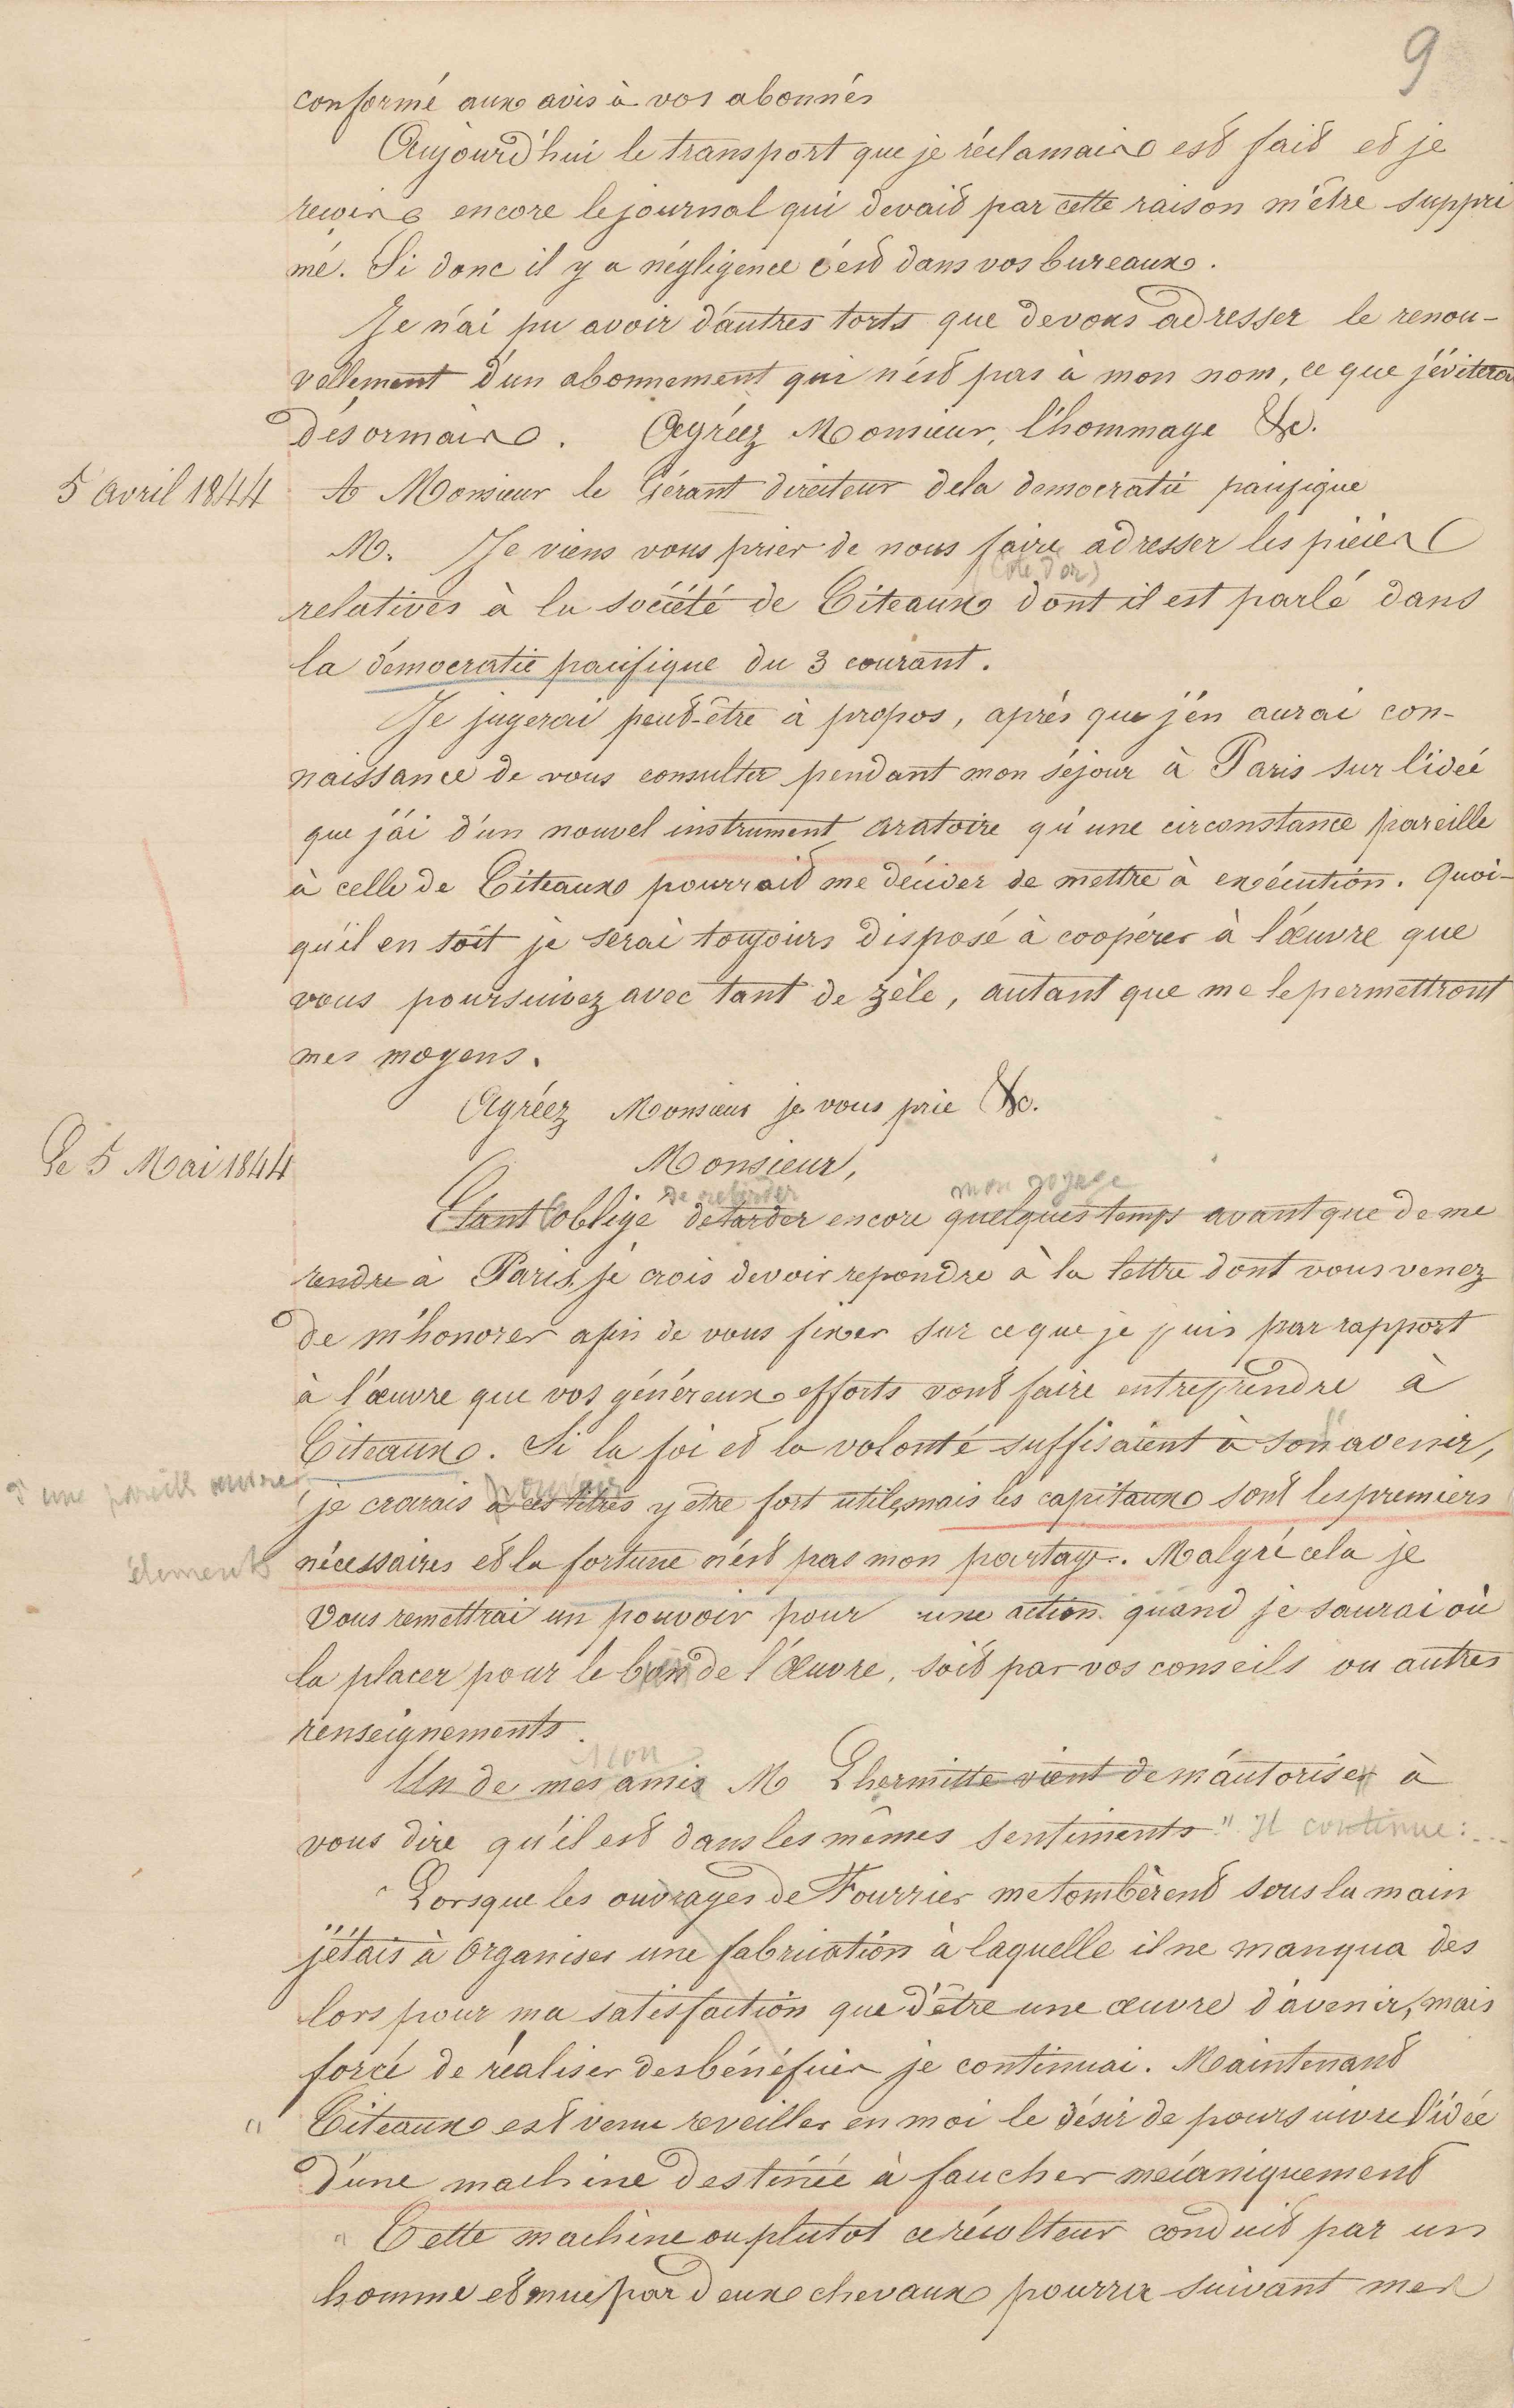 9
conformé aux avis à vos abonnés
Aujourd'hui le transport que je réclamais est fait et je
reçois encore le journal qui devait par cette raison m'être suppri
mé. Si donc il y a négligence c'est dans vos bureaux.
Je n'ai pu avoir d'autres torts que de vous adresser le renou-
vellement d'un abonnement qui n'est pas à mon nom, ce que j'éviterai
désormais. Agréez Monsieur, l'hommage &c.
5 Avril 1844 A Monsieur le Gérant directeur de la democratie pacifique
M. Je viens vous prier de nous faire adresser les pièces
(Côte d'or)
relatives à la société de Citeaux dont il est parlé dans
la démocratie pacifique du 3 courant.
Je jugerai peut-être à propos, après que j'en aurai con-
naissance de vous consulter pendant mon séjour à Paris sur l'idée
que j'ai d'un nouvel instrument aratoire qu'une circonstance pareille
à celle de Citeaux pourrait me décider de mettre à exécution. Quoi-
qu'il en soit je serai toujours disposé à coopérer à l'œuvre que
vous poursuivez avec tant de zèle, autant que me le permettront
mes moyens.
Agréez Monsieur je vous prie &c.
Le 5 Mai 1844 Monsieur,
de retarder mon voyage
Etant obligé de tarder encore quelques temps avant que de me
rendre à Paris, je crois devoir repondre à la lettre dont vous venez
de m'honorer afin de vous fixer sur ce que je puis par rapport
à l'œuvre que vos généreux efforts vont faire entreprendre à
Citeaux. Si la foi et la volonté suffisaient à son avenir,
d'une pareille œuvre pouvoir
je croirais à ces titres y etre fort utile, mais les capitaux sont les premiers
éléments nécessaires et la fortune n'est pas mon partage. Malgré cela je
vous remettrai un pouvoir pour une action quand je saurai où
la placer pour le bien de l'Œuvre, soit par vos conseils ou autres
renseignements.
mon
Un de mes amis M Lhermitte vient de m'autoriser à
vous dire qu'il est dans les mêmes sentiments". Il continue:...
"Lorsque les ouvrages de Fourrier me tombèrent sous la main
j'étais à Organiser une fabrication à laquelle il ne manqua des
lors pour ma satisfaction que d'être une œuvre d'avenir, mais
forcé de réaliser des bénéfices je continuai. Maintenant
" Citeaux est venu reveiller en moi le désir de poursuivre l'idée
d'une machine destinée à faucher mécaniquement
" Cette machine ou plutot ce récolteur conduit par un
homme et mue par deux chevaux pourra suivant mes